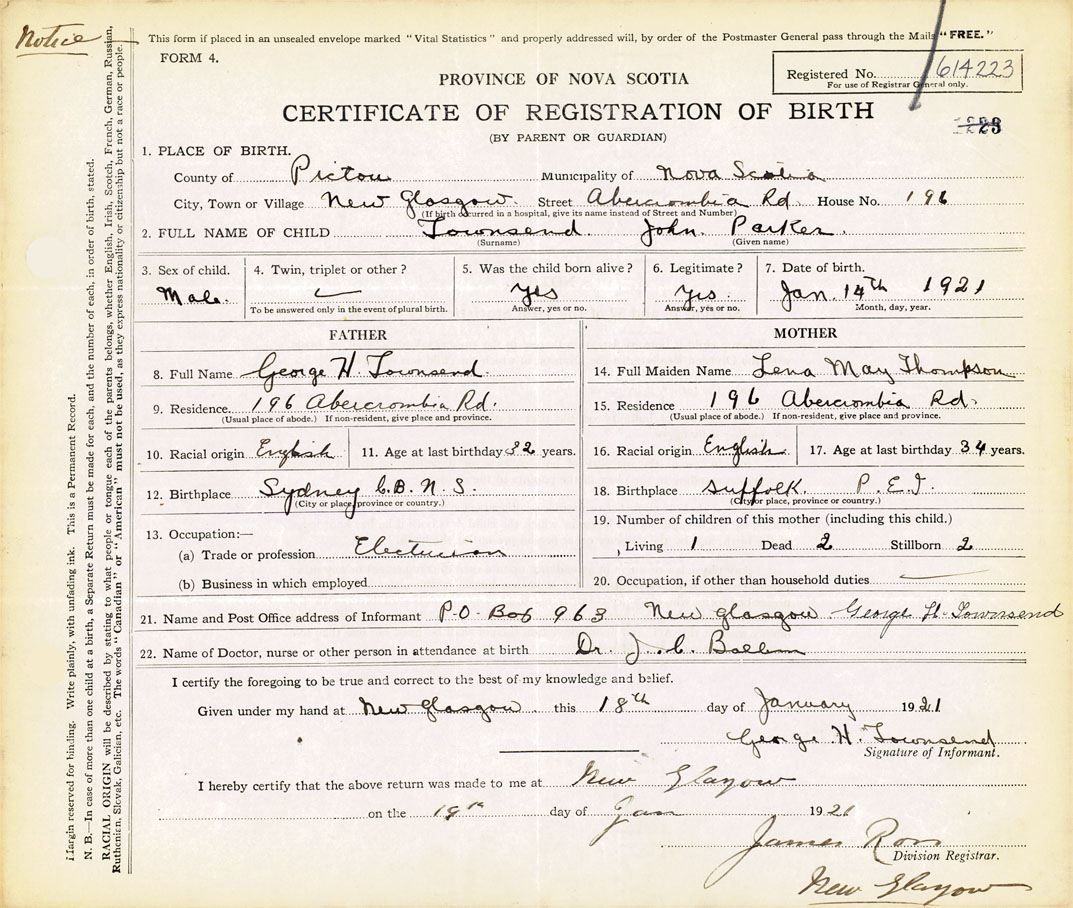 Notice
This form if placed in an unsealed envelope marked "Vital Statistics" and properly addressed will, by order of the Postmaster General pass through the Mails "FREE."
FORM 4.
Registered No. 614223
For use of Registrar General only.
PROVINCE OF NOVA SCOTIA
CERTIFICATE OF REGISTRATION OF BIRTH
(BY PARENT OR GUARDIAN)
1. PLACE OF BIRTH.
County of Pictou Municipality of Nova Scotia
City, Town or Village New Glasgow. Street Abercrombia Rd. House No. 196
(If birth occurred in a hospital, give its name instead of Street and Number)
2. FULL NAME OF CHILD Townsend. John. Parker.
(Surname) (Given name)
3. Sex of child. 4. Twin, triplet or other? 5. Was the child born alive? 6. Legitimate? 7. Date of birth.
Male. yes yes. Jan. 14th 1921
To be answered only in the event of plural birth. Answer, yes or no. Answer, yes or no. Month, day, year.
FATHER
8. Full Name George H. Townsend
9. Residence. 196 Abercrombia Rd.
(Usual place of abode.) If non-resident, give place and province.
10. Racial origin English 11. Age at last birthday 32 years.
12. Birthplace Sydney C.B. N.S.
(City or place, province or country.)
13. Occupation:—
(a) Trade or profession Electrician
(b) Business in which employed
MOTHER
14. Full Maiden Name Lena May Thompson
15. Residence 196 Abercrombia Rd.
(Usual place of abode.) If non-resident, give place and province.
16. Racial origin English 17. Age at last birthday 34 years.
18. Birthplace Suffolk. P.E.I.
(City or place, province or country.)
19. Number of children of this mother (including this child.)
Living 1 Dead 2 Stillborn 2
20. Occupation, if other than household duties
21. Name and Post Office address of Informant P.O. Box 963 New Glasgow George H. Townsend
22. Name of Doctor, nurse or other person in attendance at birth Dr. J. C.
I certify the foregoing to be true and correct to the best of my knowledge and belief.
Given under my hand at New Glasgow. this 18th day of January 1921
George H. Townsend
Signature of Informant.
I hereby certify that the above return was made to me at New Glasgow
on the 19th day of Jan 1921
James Ross
Division Registrar.
New Glasgow
Margin reserved for binding. Write plainly, with unfading ink. This is a Permanent Record.
N. B.—In case of more than one child at a birth, a Separate Return must be made for each, and the number of each, in order of birth, stated.
RACIAL ORIGIN will be described by stating to what people or tongue each of the parents belongs, whether English, Irish, Scotch, French, German, Russian,
Ruthenian, Slovak, Galician, etc. The words "Canadian" or "American" must not be used, as they express nationality or citizenship but not a race or people.